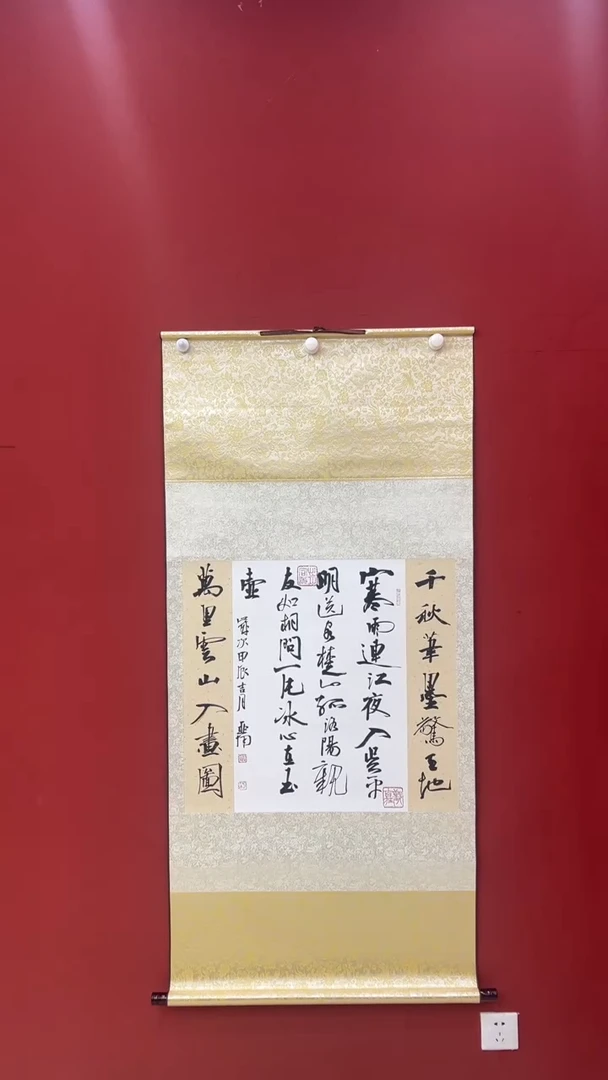 千秋華墨驚天地
寒雨連江夜入吳平
明送客楚山孤洛陽親
友如相問一片冰心在玉
壺
歲次甲辰吉月
萬里雲山入畫圖